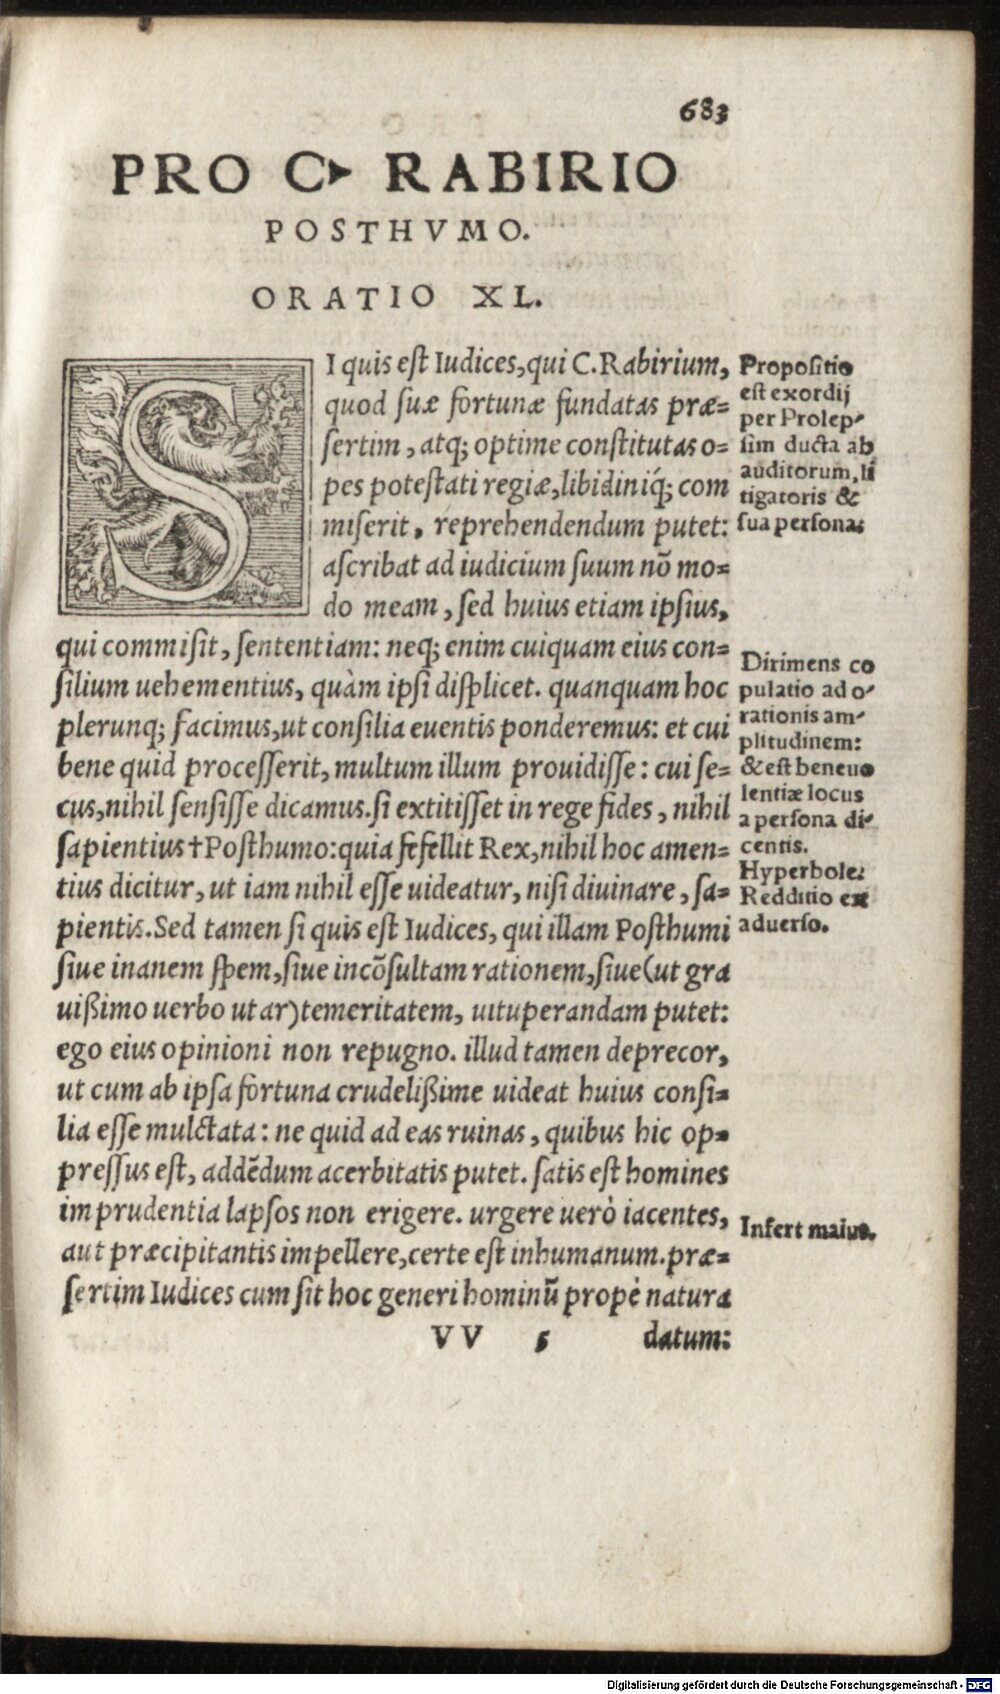 683
PRO C. RABIRIO
POSTHVMO.
ORATIO XL.
SI quis est Iudices, qui C. Rabirium,
quod suæ fortunæ fundatas præ=
sertim, atq; optime constitutas o=
pes potestati regiæ, libidiniq́; com
miserit, reprehendendum putet:
ascribat ad iudicium suum nō mo=
do meam, sed huius etiam ipsius,
qui commisit, sententiam: neq; enim cuiquam eius con=
silium uehementius, quàm ipsi displicet. quanquam hoc
plerunq; facimus, ut consilia euentis ponderemus: et cui
bene quid processerit, multum illum prouidisse: cui se=
cus, nihil sensisse dicamus. si extitisset in rege fides, nihil
sapientius †Posthumo: quia fefellit Rex, nihil hoc amen=
tius dicitur, ut iam nihil esse uideatur, nisi diuinare, sa=
pientis. Sed tamen si quis est Iudices, qui illam Posthumi
siue inanem spem, siue incōsultam rationem, siue (ut gra
uißimo uerbo utar) temeritatem, uituperandam putet:
ego eius opinioni non repugno. illud tamen deprecor,
ut cum ab ipsa fortuna crudelißime uideat huius consi=
lia esse mulctata: ne quid ad eas ruinas, quibus hic op=
pressus est, addēdum acerbitatis putet. satis est homines
imprudentia lapsos non erigere. urgere uerò iacentes,
aut præcipitantis impellere, certe est inhumanum. præ=
sertim Iudices cum sit hoc generi hominū propè natura
VV 5 datum:
Propositio
est exordij
per Prolep-
sim ducta ab
auditorum, li
tigatoris &
sua persona:
Dirimens co
pulatio ad o-
rationis am-
plitudinem:
& est beneuo
lentiæ locus
a persona di-
centis.
Hyperbole:
Redditio ex
aduerso.
Infert maius.
Digitalisierung gefördert durch die Deutsche Forschungsgemeinschaft - DFG